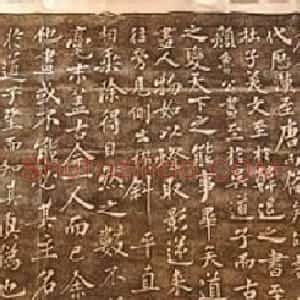 代歷漢至唐而備
杜子美文至於韓退之書至
顏魯公畫至於吳道子而古
之變天下之能事畢矣道
畫人物如以燈取影逆來
往旁見側出橫斜平直
相乘除得自然之數不
毫末蓋古今一人而已余
他畫或不能必其主名
於道子望而知其真偽也